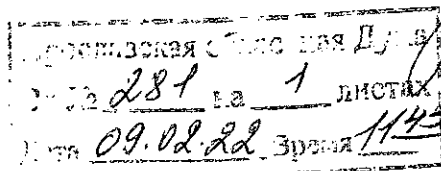 Ярославская областная Дума
Вх № 281 на 1 листах
Дата 09.02.22 Время 11 43